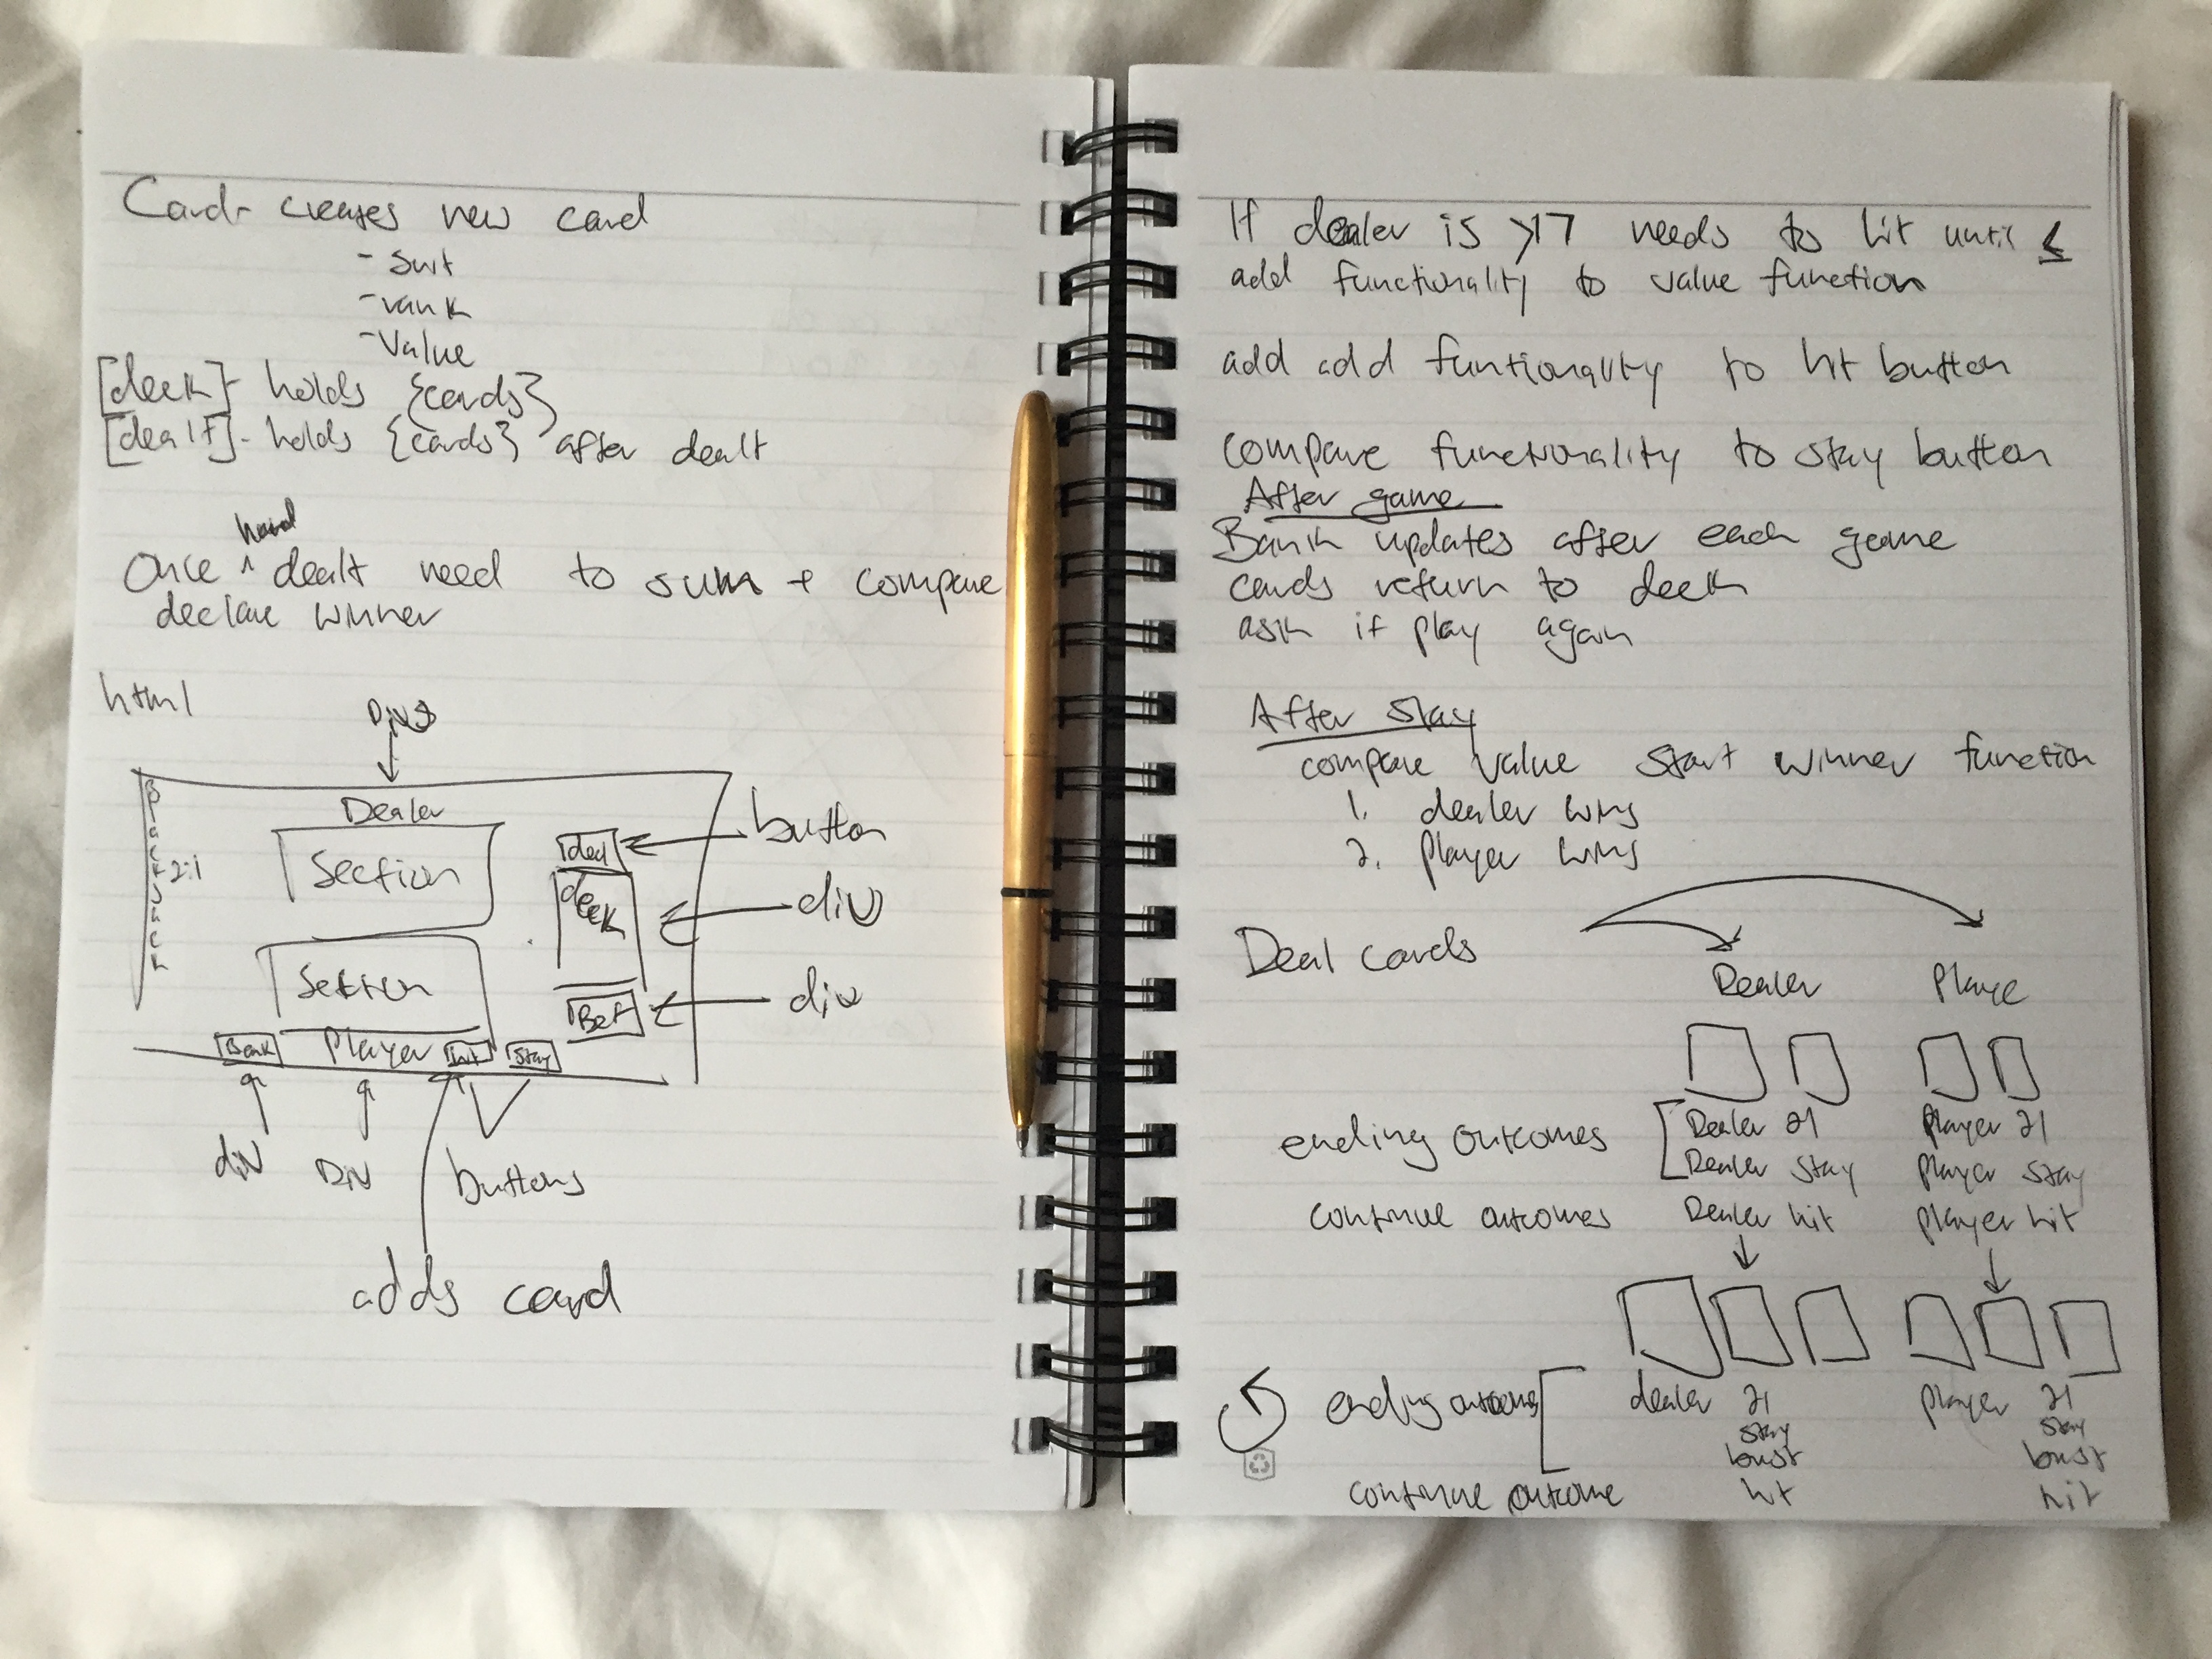 Card - creates new card
- suit
- rank
- value
[deck] - holds {cards}
[dealt] - holds {cards} after dealt
Once ^ hand dealt need to sum + compare
declare winner
html
Divs
Dealer
Section
Section
Bank
Player
hit
stay
deal
deck
Bet
button
div
div
div
Div
buttons
adds card
If dealer is >17 needs to hit until ≤
add functionality to value function
add add funtionality to hit button
compare functionality to stay button
After game
Bank updates after each game
cards return to deck
ask if play again
After stay
compare value start winner function
1. dealer wins
2. player wins
Deal cards
Dealer
Playe
ending outcomes
Dealer 21
Player 21
Dealer stay
player stay
continue outcomes
Dealer hit
player hit
ending outcomes
dealer
21
stay
bust
player
21
stay
bust
continue outcome
hit
hit